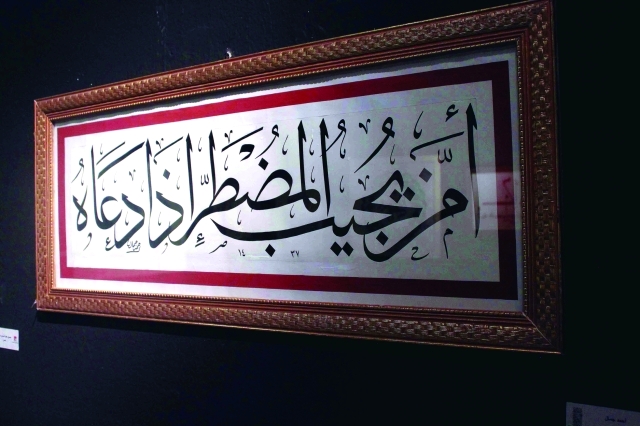 أمّن يجيب المضطرّ إذا دعاه
١٤ ٣٧